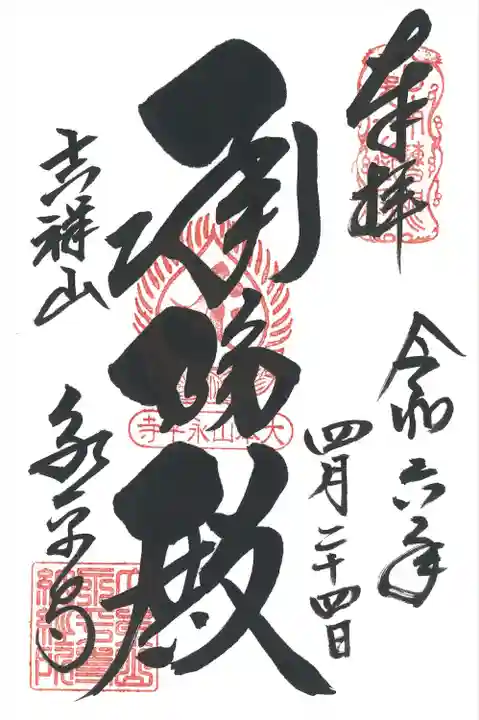 奉拝
令和六年
四月二十四日
承陽殿
吉祥山
永平寺
大本山永平寺